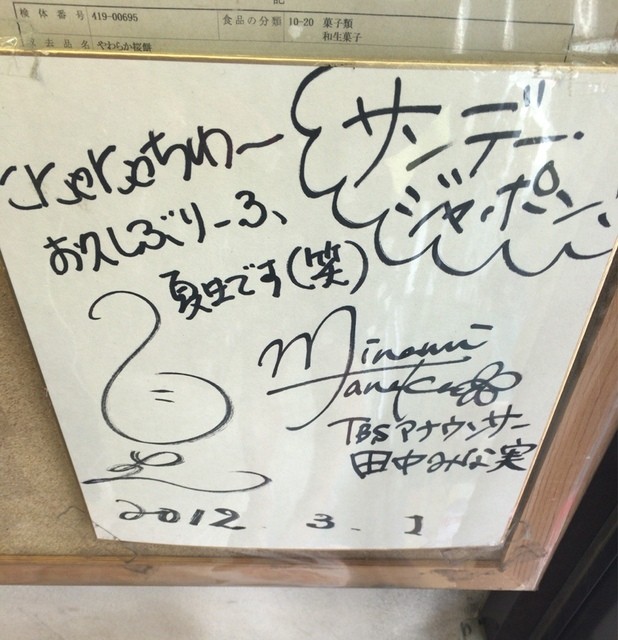 記
検体番号 419-00695 食品の分類 10-20 菓子類
和生菓子
去品名 やわらか桜餅
サンデー・
ジャポン
ちわー
お久しぶりーふ、
夏生です(笑)
Minami
Tanaka
TBSアナウンサー
田中みな実
2012. 3. 1